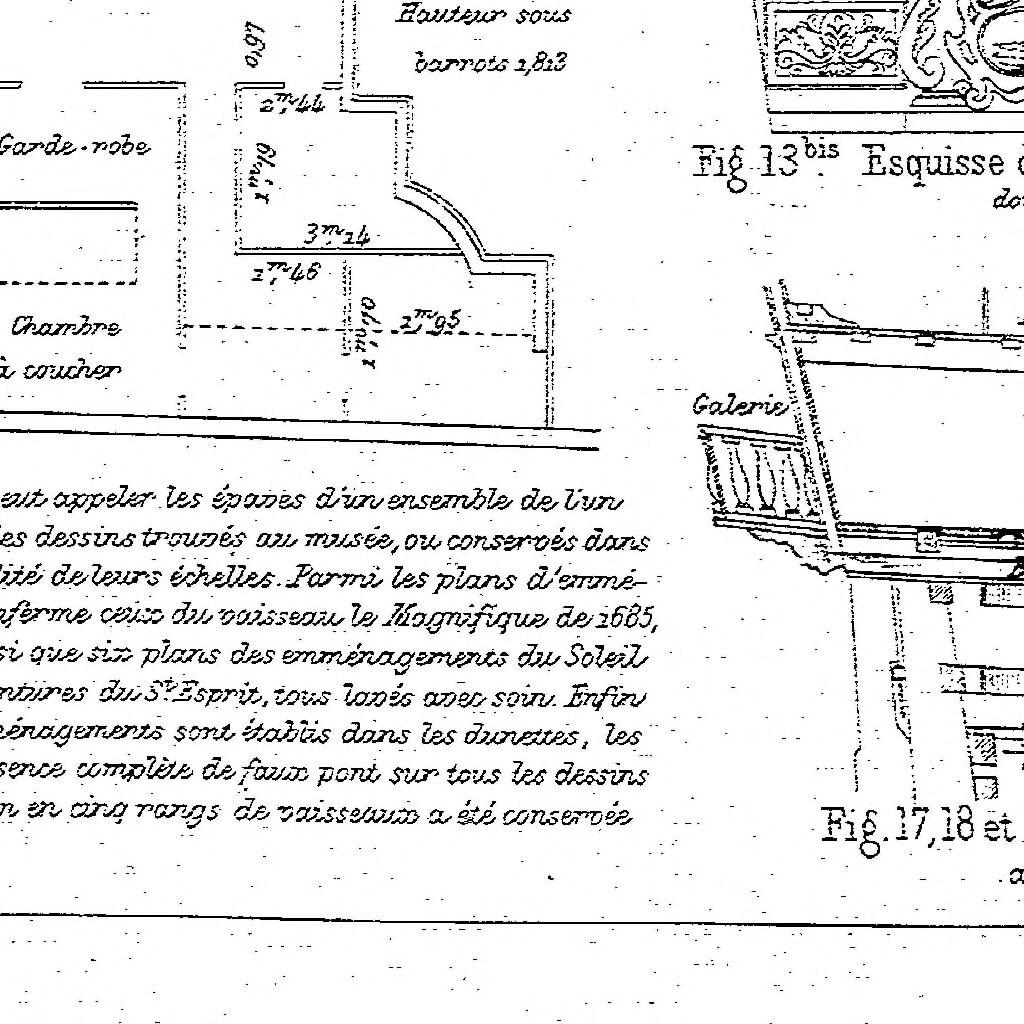 Hauteur sous
barrots 1,813
2,m44
Garde-robe
3,m14
1,m46
2,m95
Chambre
à coucher
Fig 13bis. Esquisse
Galerie
eut appeler les épaves d'un ensemble de l'un
es dessins trouvés au musée, ou conservés dans
lité de leurs échelles. Parmi les plans d'emmé-
nferme ceux du vaisseau le Magnifique de 1685,
si que six plans des emménagements du Soleil
ntures du St. Esprit, tous lavés avec soin. Enfin
ménagements sont établis dans les dunettes, les
sence complète de faux pont sur tous les dessins
n en cinq rangs de vaisseaux a été conservée
Fig. 17, 18 et